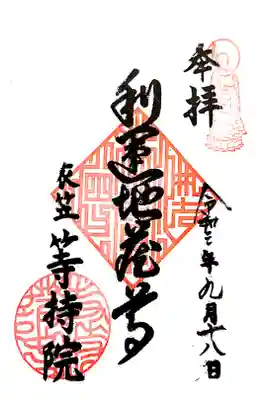 奉拝
令和二年九月十八日
利運地蔵尊
衣笠 等持院